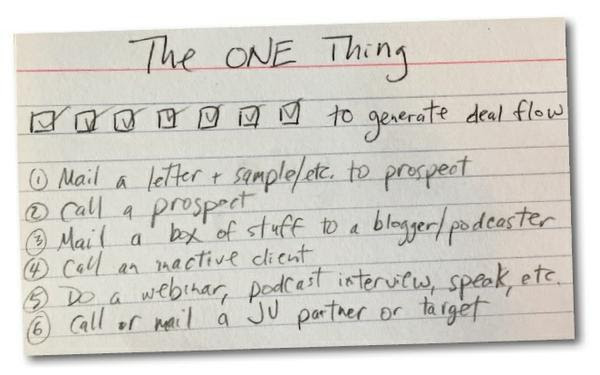 The ONE Thing
☑ ☑ ☑ ☑ ☑ ☑ ☑ to generate deal flow
① Mail a letter + sample/etc. to prospect
② Call a prospect
③ Mail a box of stuff to a blogger/podcaster
④ Call an inactive client
⑤ Do a webinar, podcast interview, speak, etc.
⑥ Call or mail a JV partner or target